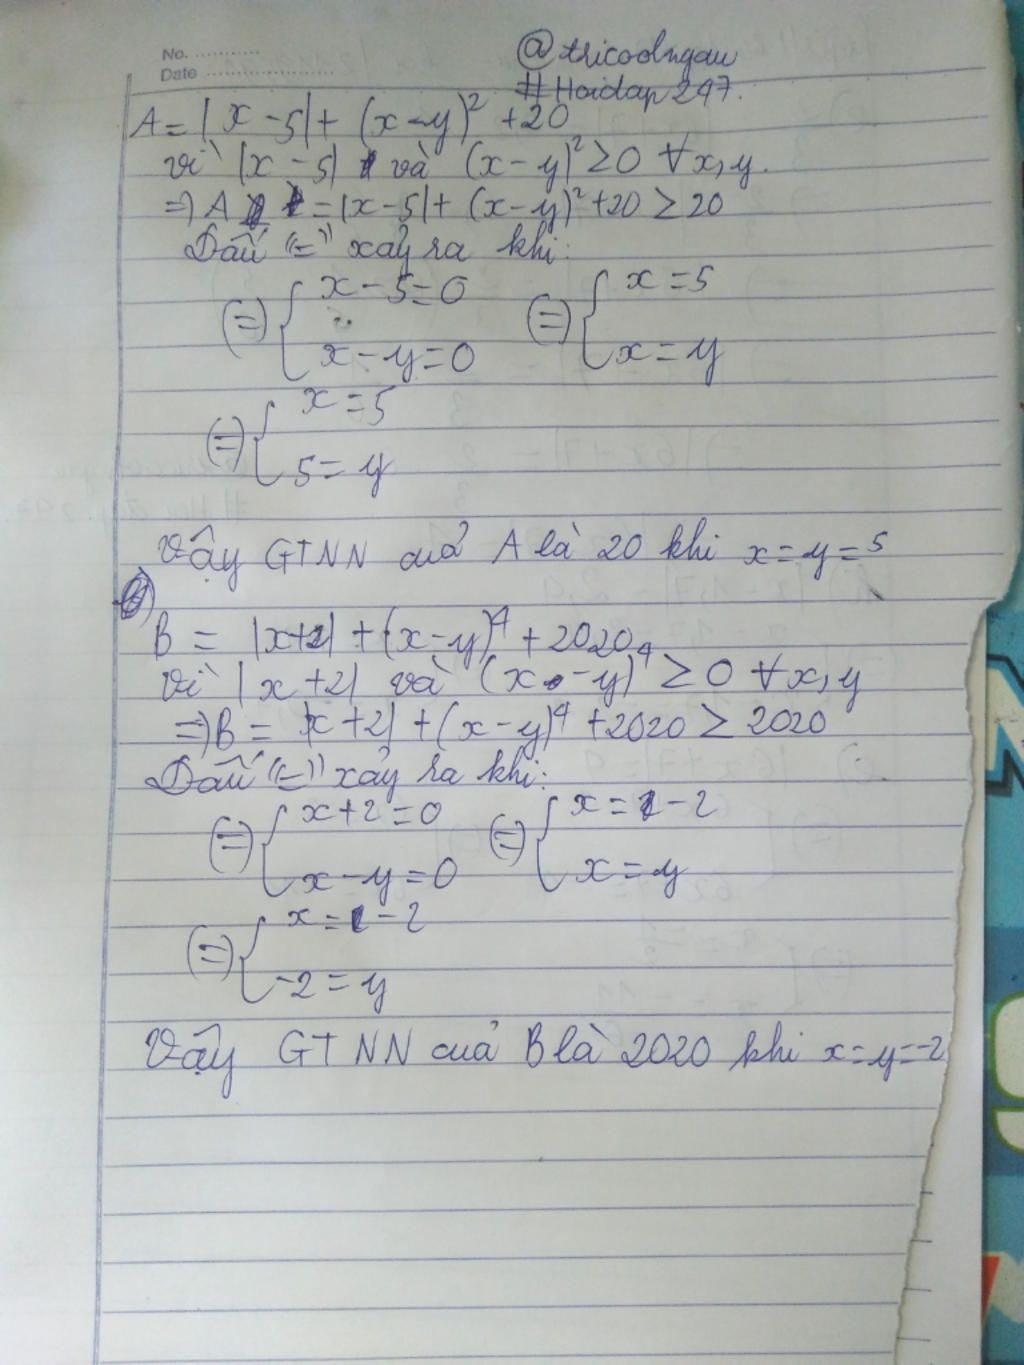 No. ............
Date ........................
@tricoolngau
#Hoidap247.
A = |x - 5| + (x - y)² + 20
Vì |x - 5| và (x - y)² ≥ 0 ∀x, y.
=> A = |x - 5| + (x - y)² + 20 ≥ 20
Dấu "=" xảy ra khi:
(=) { x - 5 = 0 (=) { x = 5
x - y = 0 x = y
(=) { x = 5
5 = y
Vậy GTNN của A là 20 khi x = y = 5
B = |x + 2| + (x - y)⁴ + 2020
Vì |x + 2| và (x - y)⁴ ≥ 0 ∀x, y
=> B = |x + 2| + (x - y)⁴ + 2020 ≥ 2020
Dấu "=" xảy ra khi:
(=) { x + 2 = 0 (=) { x = -2
x - y = 0 x = y
(=) { x = -2
-2 = y
Vậy GTNN của B là 2020 khi x = y = -2